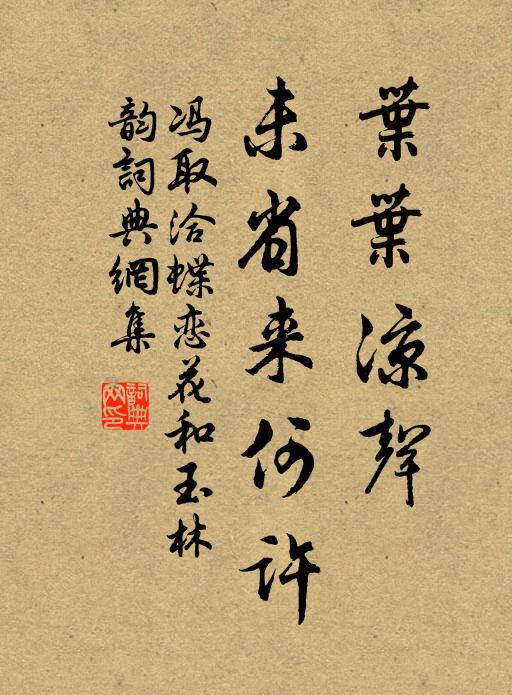 葉葉涼聲
未省来何許
冯取洽蝶恋花和玉林
韵詞典網集
詞典網印